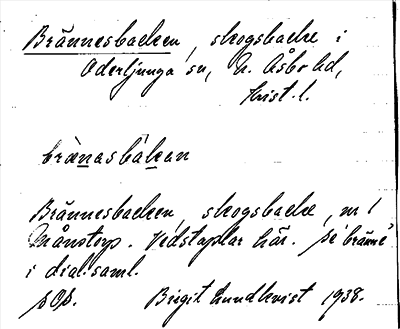 Brännesbacken, skogsbacke i
Oderljunga sn, N. Åsbo hd,
Krist. l.
brænasbakan
Brännesbacken, skogsbacke, nr 1
Månstorp. Vedstaplar här. Se bränne
i dial.saml.
Birgit Lundkvist 1938.